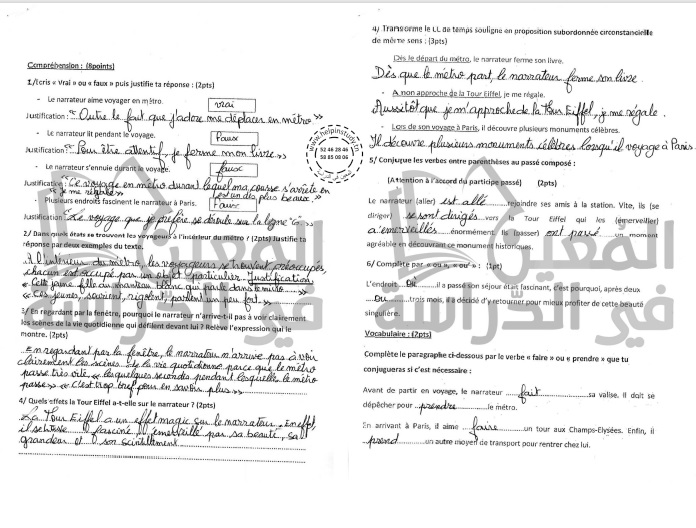 Compréhension : (8points)
1/Ecris « Vrai » ou « faux » puis justifie ta réponse : (2pts)
- Le narrateur aime voyager en métro. vrai
Justification : « Outre le fait que j'adore me déplacer en métro »
- Le narrateur lit pendant le voyage. faux
Justification : « Pour être attentif, je ferme mon livre. »
- Le narrateur s'ennuie durant le voyage. faux
Justification : « Ce voyage en métro durant lequel ma course s'arrête en
« je me régale » est un des plus beaux »
- Plusieurs endroits fascinent le narrateur à Paris. Faux
Justification « Le voyage que je préfère se déroule sur la ligne "6" »
2/ Dans quels états se trouvent les voyageurs à l'intérieur du métro ? (2pts) Justifie ta
réponse par deux exemples du texte.
À l'intérieur du métro, les voyageurs se trouvent préoccupés,
chacun est occupé par un objet particulier. Justification
« Cette jeune fille au manteau blanc qui parle dans le micro »
« Ces jeunes, sourient, rigolent, parlent un peu fort »
3/ En regardant par la fenêtre, pourquoi le narrateur n'arrive-t-il pas à voir clairement
les scènes de la vie quotidienne qui défilent devant lui ? Relève l'expression qui le
montre. (2pts)
En regardant par la fenêtre, le narrateur n'arrive pas à voir
clairement les scènes de la vie quotidienne parce que le métro
passe très vite. « les quelques seconds pendant lesquelles le métro
passe » « C'est trop bref pour en savoir plus »
4/ Quels effets la Tour Eiffel a-t-elle sur le narrateur ? (2pts)
La Tour Eiffel a un effet magic sur le narrateur. En effet,
il se laisse fasciné, émerveillé par sa beauté, sa
grandeur et son scintillement
www.helpinstudy.tn
52 46 28 46
58 85 08 06
4/ Transforme le CC de temps souligné en proposition subordonnée circonstancielle
de même sens : (3pts)
Dès le départ du métro, le narrateur ferme son livre.
Dès que le métro part, le narrateur ferme son livre.
- A mon approche de la Tour Eiffel, je me régale.
Aussitôt que je m'approche de la Tour Eiffel, je me régale.
- Lors de son voyage à Paris, il découvre plusieurs monuments célèbres.
Il découvre plusieurs monuments célèbres lorsqu'il voyage à Paris.
5/ Conjugue les verbes entre parenthèses au passé composé :
(Attention à l'accord du participe passé) (2pts)
Le narrateur (aller) est allé rejoindre ses amis à la station. Vite, ils (se
diriger) se sont dirigés vers la Tour Eiffel qui les (émerveiller)
a émerveillés énormément. Ils (passer) ont passé un moment
agréable en découvrant ce monument historique.
6/ Complète par « ou », « où » : (1pt)
L'endroit où il a passé son séjour était fascinant, c'est pourquoi, après deux
ou trois mois, il a décidé d'y retourner pour mieux profiter de cette beauté
singulière.
Vocabulaire : (2pts)
Complète le paragraphe ci-dessous par le verbe « faire » ou « prendre » que tu
conjugueras si c'est nécessaire :
Avant de partir en voyage, le narrateur fait sa valise. Il doit se
dépêcher pour prendre le métro.
En arrivant à Paris, il aime faire un tour aux Champs-Elysées. Enfin, il
prend un autre moyen de transport pour rentrer chez lui.